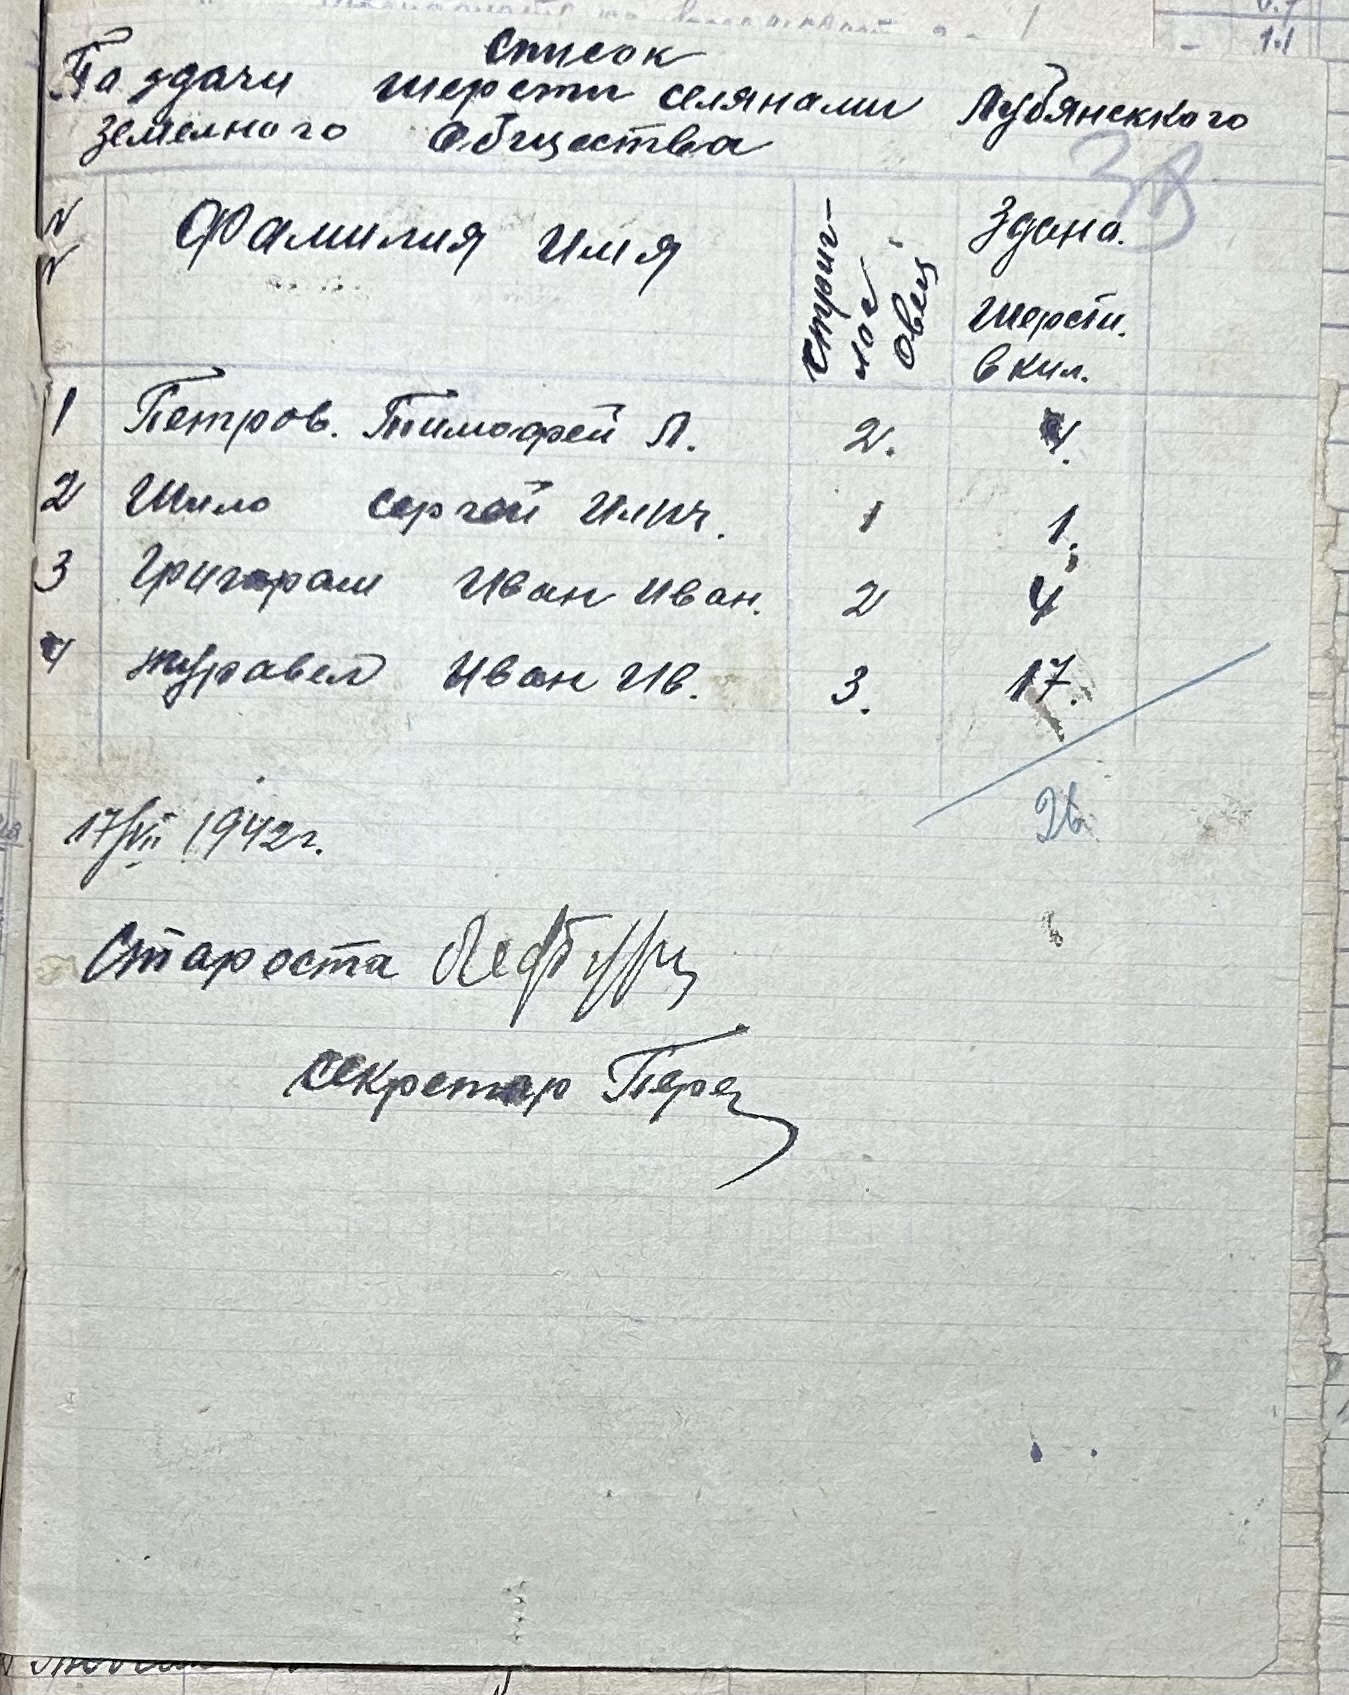 Список
По здачи шерсти селянами Лубянсккого
Земелного Общества
38
NN Фамилия Имя Стриглос овец Здано. шерсти. в кил.
1 Петров. Тимофей Л. 2. 4.
2 Шило Сергей Илич. 1 1.
3 Григораш Иван Иван. 2 4
4 Журавел Иван Ив. 3. 17.
26
17/VII 1942г.
Староста
Секретар